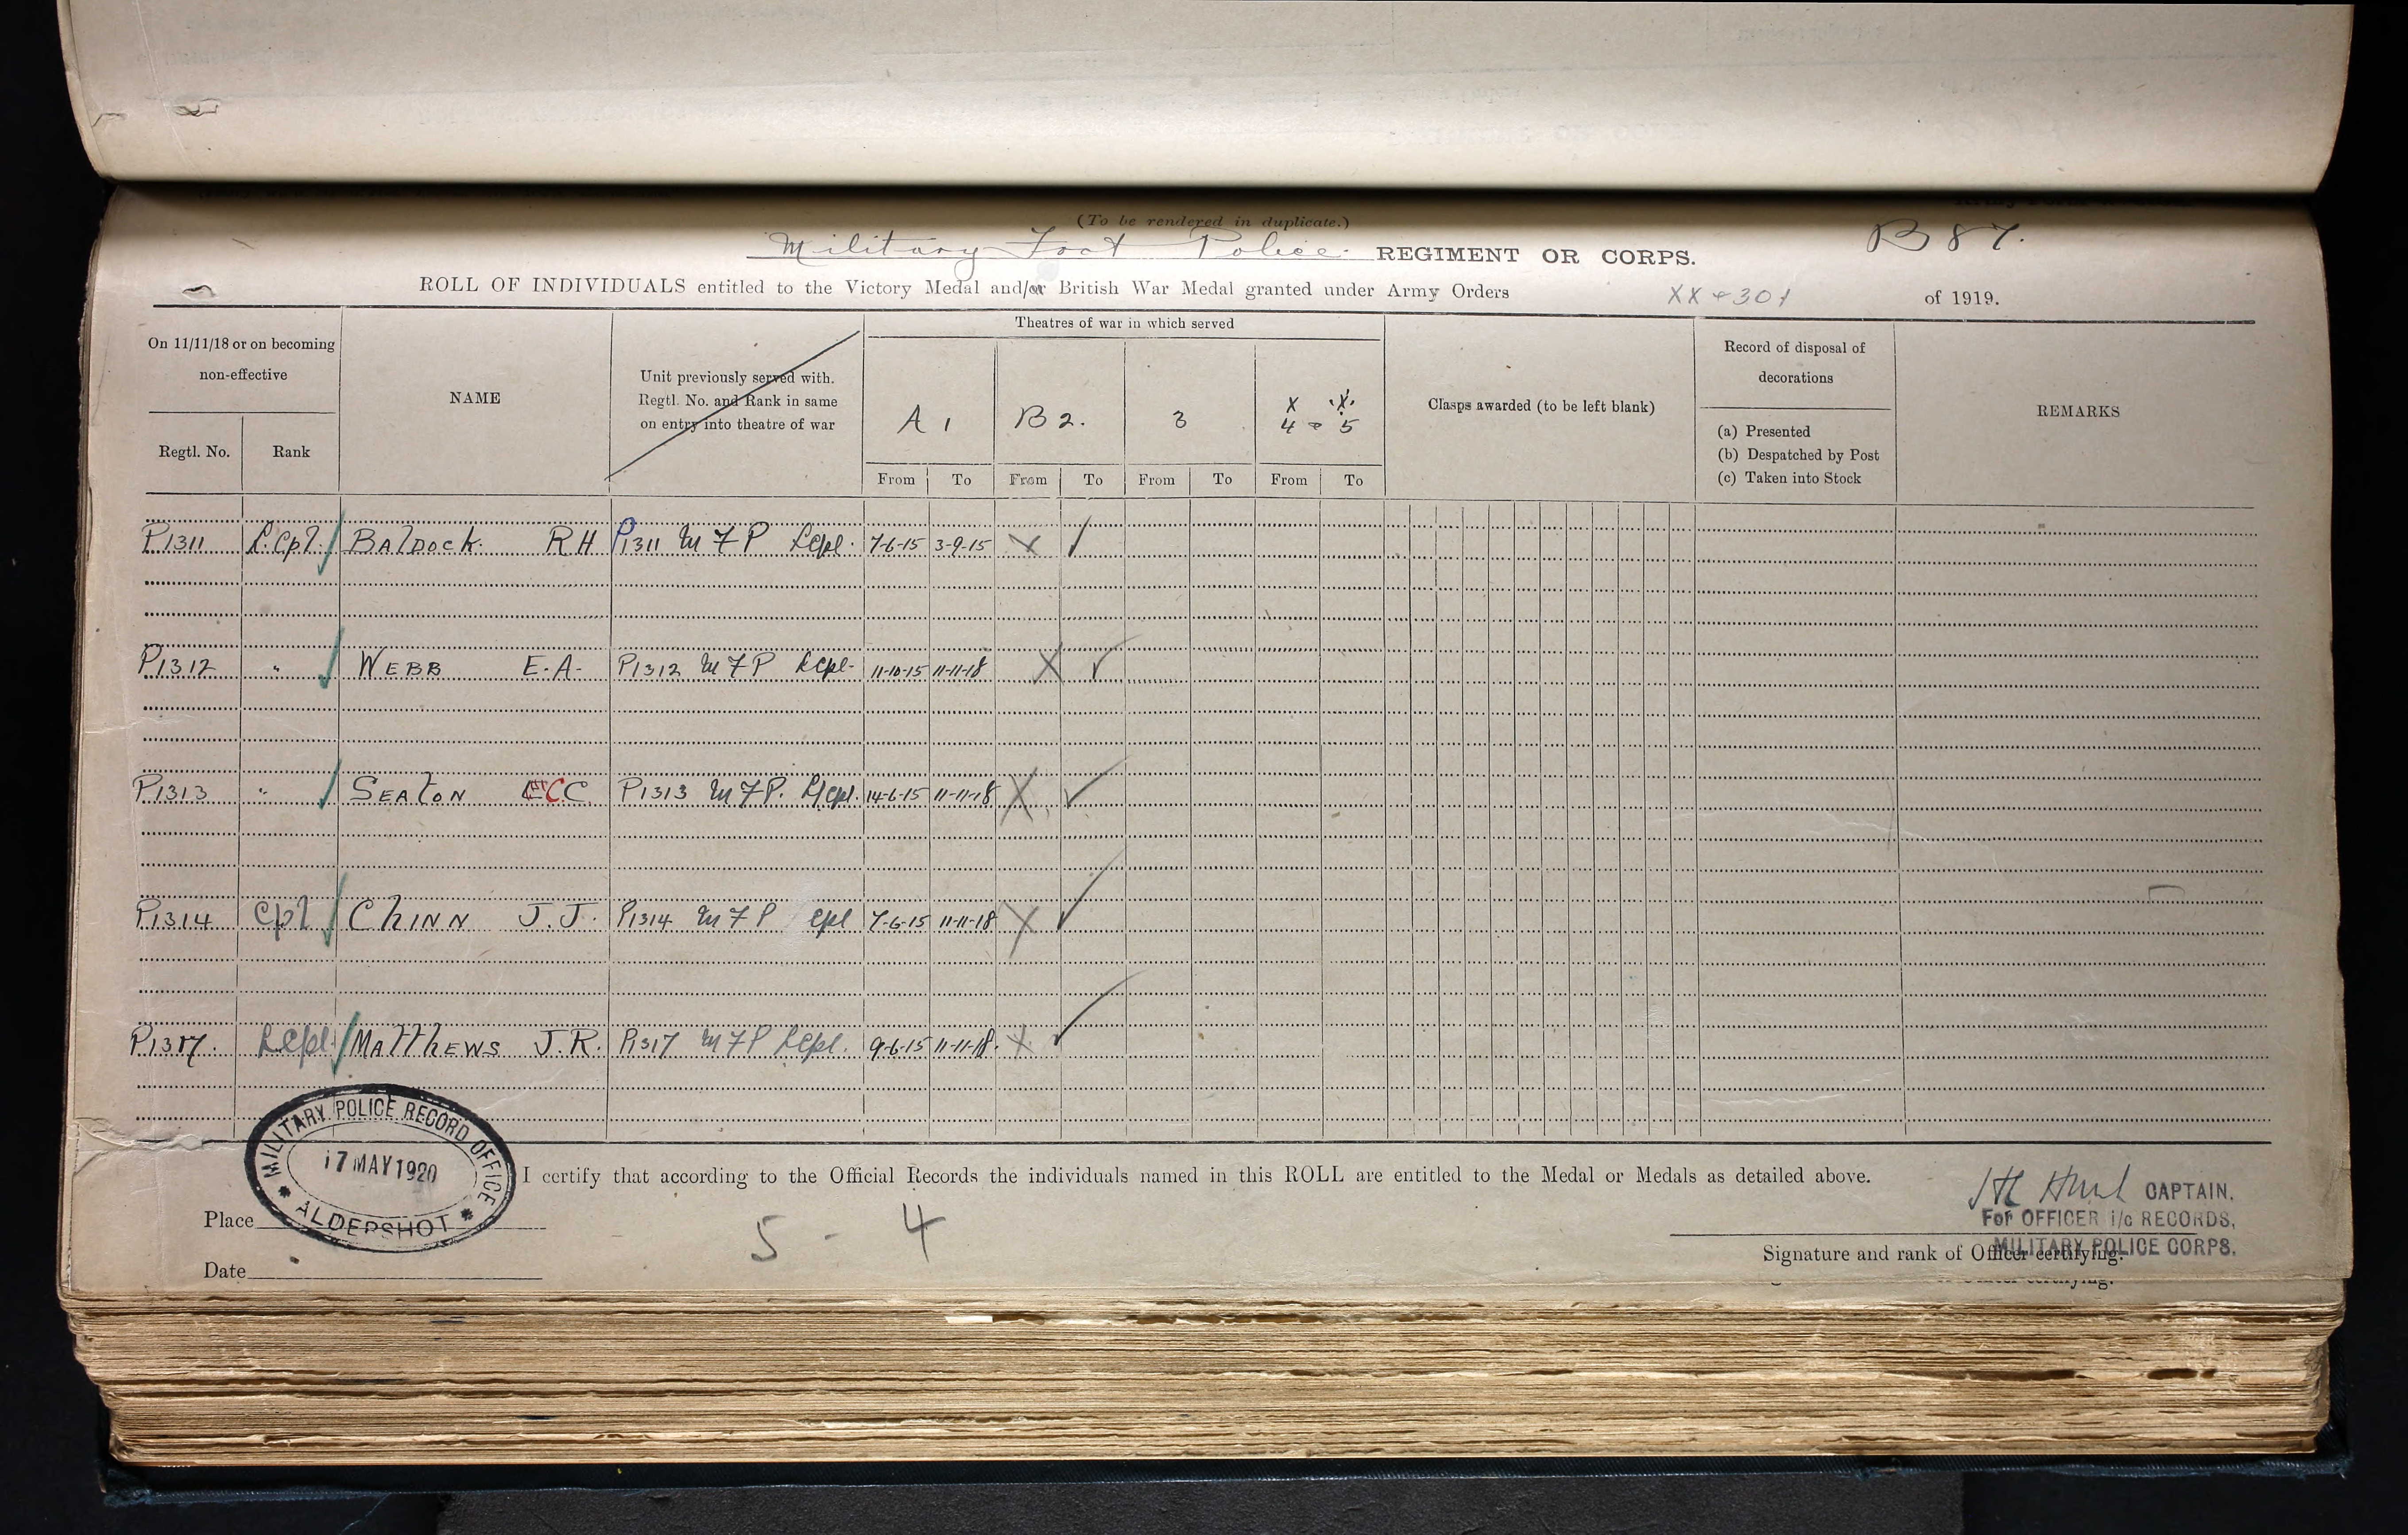 (To be rendered in duplicate.)
Military Foot Police. REGIMENT OR CORPS.
B 87.
ROLL OF INDIVIDUALS entitled to the Victory Medal and/or British War Medal granted under Army Orders XX + 301 of 1919.
On 11/11/18 or on becoming non-effective
Regtl. No.
Rank
NAME
Unit previously served with.
Regtl. No. and Rank in same
on entry into theatre of war
Theatres of war in which served
A 1
B 2.
3
X X
4 5
From To From To From To From To
Clasps awarded (to be left blank)
Record of disposal of
decorations
(a) Presented
(b) Despatched by Post
(c) Taken into Stock
REMARKS
P1311 L.Cpl. BALDOCK. R H P1311 M F P Lcpl. 7-6-15 3-9-15 X ✓
P1312 " WEBB E.A. P1312 M F P Lcpl. 11-10-15 11-11-18 X ✓
P1313 " SEATON CC P1313 M F P. L/cpl. 14-6-15 11-11-18 X ✓
P1314 Cpl CHINN J.J. P1314 M F P cpl 7-6-15 11-11-18 X ✓
Lcpl. MATTHEWS J.R. P1317 M F P Lcpl. 9-6-15 11-11-18. X ✓
MILITARY POLICE RECORD OFFICE
17 MAY 1920
ALDERSHOT
I certify that according to the Official Records the individuals named in this ROLL are entitled to the Medal or Medals as detailed above.
Place
5 - 4
Date
CAPTAIN.
For OFFICER i/c RECORDS,
MILITARY POLICE CORPS.
Signature and rank of Officer certifying.